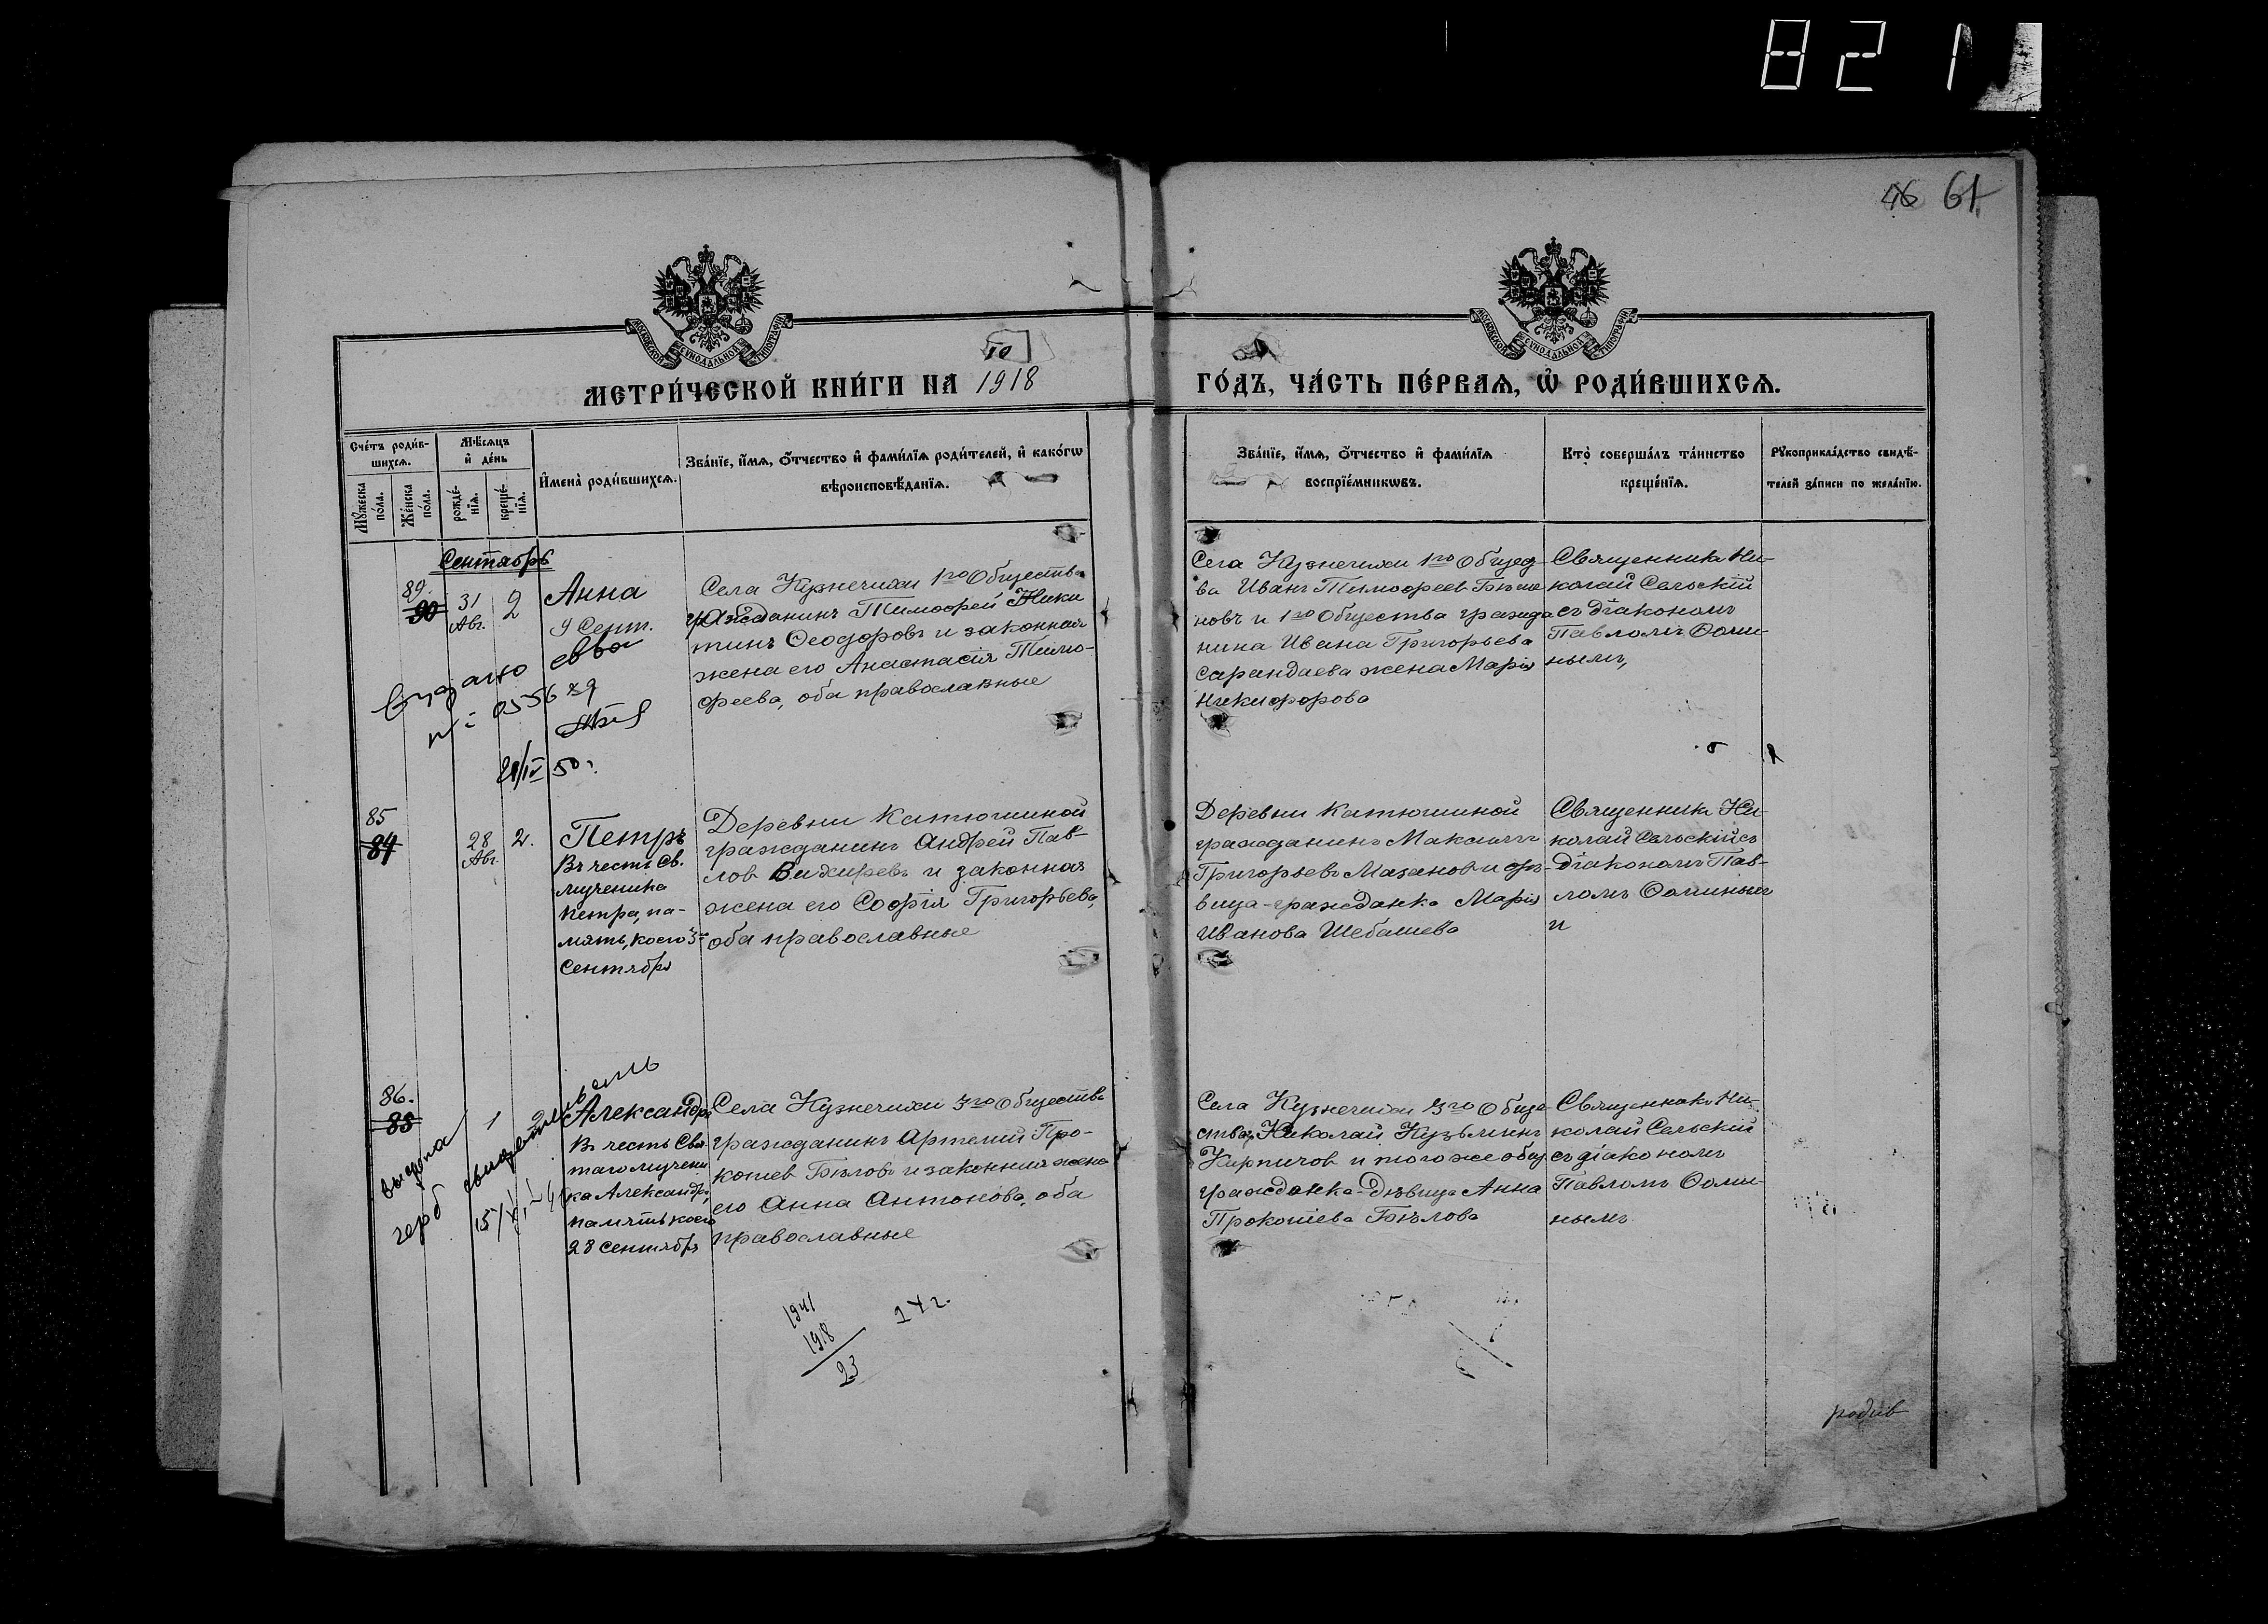 821
46 61
МОСКОВСКОЙ СѴНОДАЛЬНОЙ ТИПОГРАФІИ
МОСКОВСКОЙ СѴНОДАЛЬНОЙ ТИПОГРАФІИ
МЕТРИ́ЧЕСКОЙ КНИ́ГИ НА 1918
ГО́ДЪ, ЧА́СТЬ ПЕ́РВАѦ, Ѿ РОДИ́ВШИХСѦ.
Сче́тъ роди́в-
шихсѧ.
Мꙋ́жеска по́ла.
Же́нска по́ла.
Мѣ́сѧцъ
и҆ де́нь
рожде́-
нїѧ.
креще́-
нїѧ.
И҆мена̀ роди́вшихсѧ.
Зва́нїе, и҆́мѧ, ѻ҆́тчество и҆ фами́лїѧ роди́телей, и҆ како́гѡ
вѣроисповѣ́данїѧ.
Зва́нїе, и҆́мѧ, ѻ҆́тчество и҆ фами́лїѧ
воспрїе́мникѡвъ.
Кто̀ соверша́лъ та́инство
креще́нїѧ.
Рꙋкоприкла́дство свидѣ́-
телей за́писи по жела́нїю.
Сентябрь
89.
90
31
Авг.
2
Анна
9 Сент.
Села Кузнечихи 1го Общества
гражданинъ Тимофей Ники
тинъ Ѳеодоровъ и законная
жена его Анастасія Тимо-
феева, оба православные
Села Кузнечихи 1го Общест
ва Иванъ Тимофеев
новъ и 1го Общества гражда
нина Ивана Григорьева
Сарандаева жена Марія
Никифорова
Священникъ Ни-
колай Сельскій
съ діакономъ
Павломъ Ѳоми-
нымъ,
выдано
21/IV 50 г.
85
84
28
Авг.
2.
Петръ
Въ честь Св.
мученика
Петра, па-
мять коего 3го
Сентября
Деревни Катюшиной
гражданинъ Андрей Пав-
лов Вихирев и законная
жена его Софія Григорьева,
оба православные
Деревни Катюшиной
гражданинъ Максимъ
Григорьевъ Мазанов и дѣ-
вица-гражданка Марія
Иванова Шебашева
Священникъ Ни-
колай Сельскій съ
Діакономъ Пав-
ломъ Ѳоминым
и
86.
85
1
2
Александръ
Въ честь Свя-
таго мучени
ка Александра,
память коего
28 Сентября
выдана
герб свидетельств
Села Кузнечихи 3го Общества
гражданинъ Артемій Про-
копіев Бѣловъ и законная жена
его Анна Антонова, оба
православные
Села Кузнечихи 3го Обще
ства Николай Кузьминъ
Кирпичов и того же общ
гражданка-Дѣвица Анна
Прокопіева Бѣлова
Священникъ Ни-
колай Сельскій
съ діакономъ
Павломъ Ѳоми-
нымъ
1941
1918
23
родив